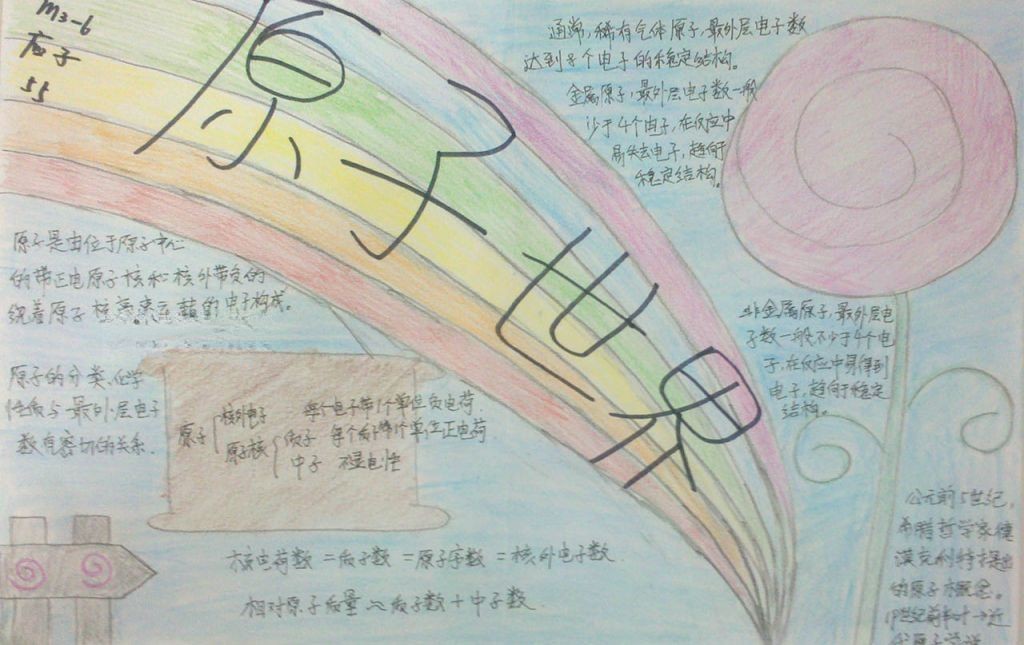 M3-6
应子
55
原子世界
通常,稀有气体原子,最外层电子数
达到8个电子的稳定结构。
金属原子,最外层电子数一般
少于4个电子,在反应中
易失去电子,趋向于
稳定结构。
原子是由位于原子中心
的带正电原子核和核外带负的
绕着原子核 电子构成。
原子的分类、化学
性质与最外层电子
数有密切的关系.
原子
核外电子 每个电子带1个单位负电荷.
原子核
质子 每个质子带1个单位正电荷
中子 不显电性
非金属原子,最外层电
子数一般不少于4个电
子,在反应中易得到
电子,趋向于稳定
结构。
核电荷数=质子数=原子序数=核外电子数.
相对原子质量≈质子数+中子数
公元前5世纪,
希腊哲学家德
谟克利特提出
的原子概念。
19世纪前半叶→近
代原子学说